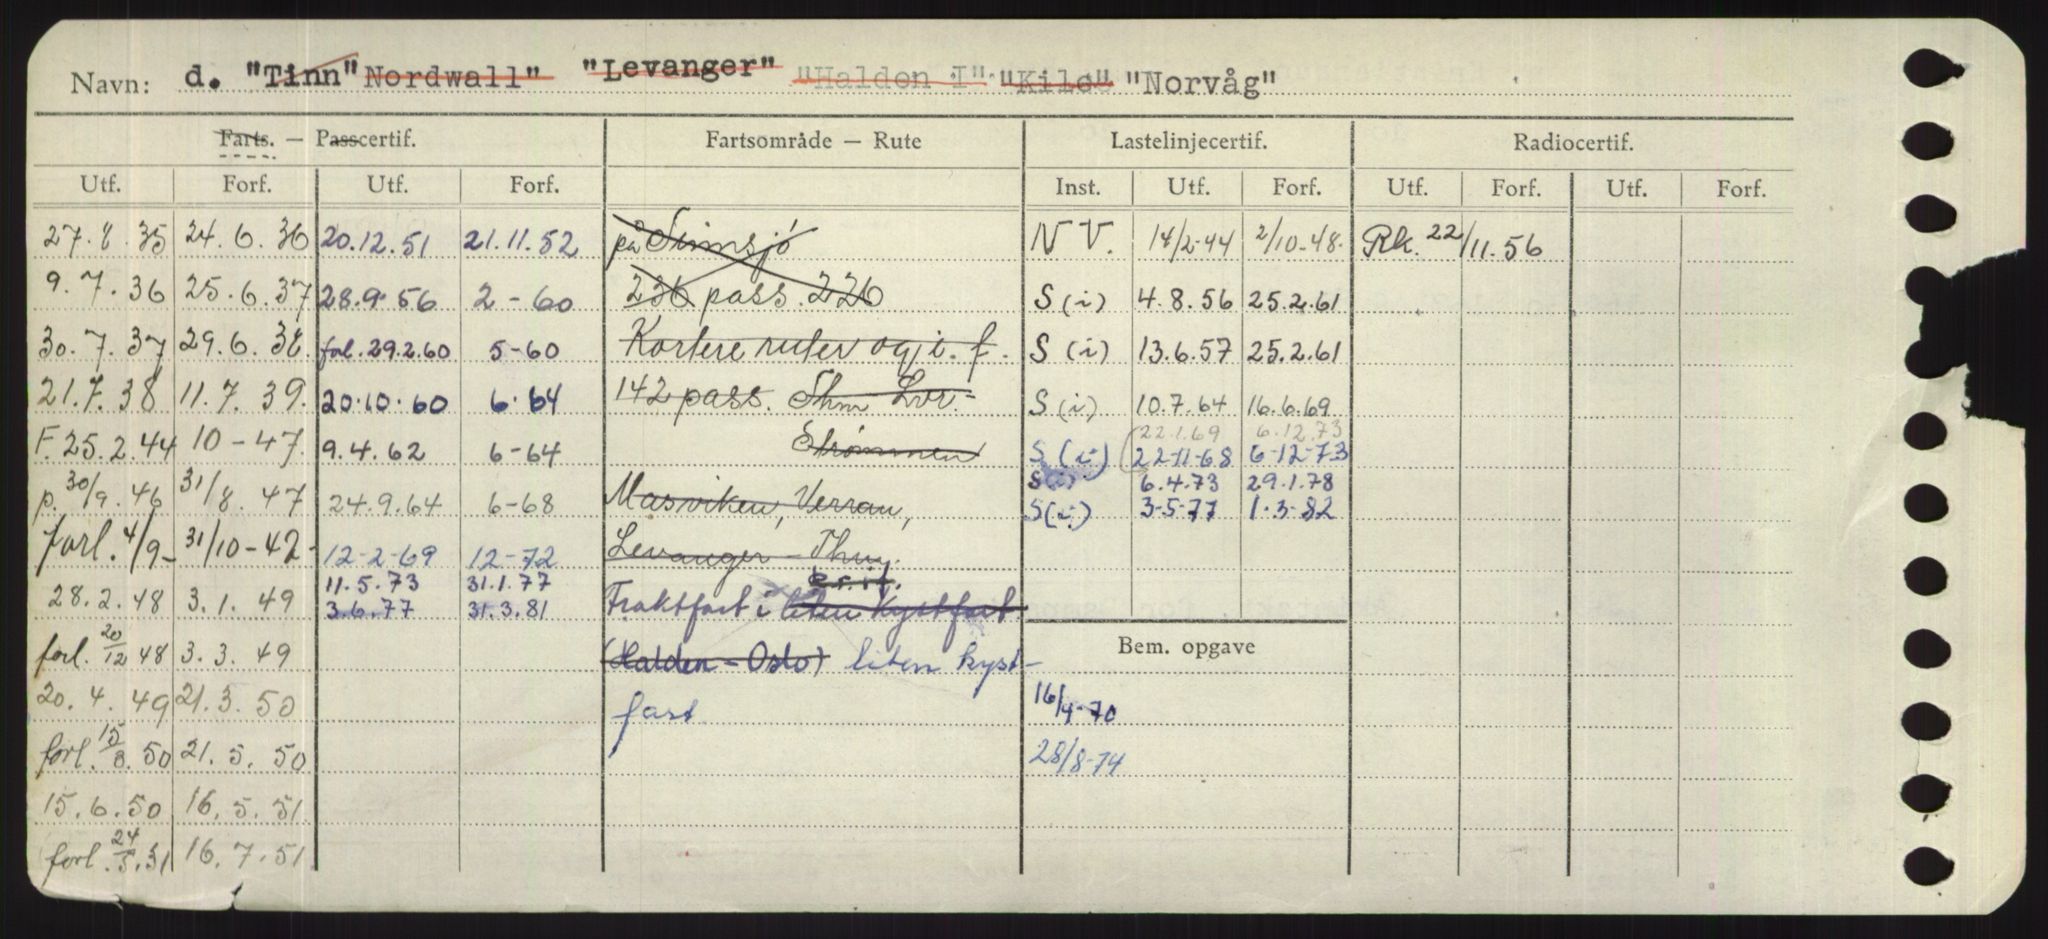 Navn: d. "Tinn" Nordwall" "Levanger" "Halden I" "Kilo" "Norvåg"
Farts. — Passcertif. Fartsområde — Rute Lastelinjecertif. Radiocertif.
Utf. Forf. Utf. Forf. Inst. Utf. Forf. Utf. Forf. Utf. Forf.
27.8.35 24.6.36 20.12.51 21.11.52 på N V. 14/2-44 2/10-48. Rk. 22/11.56
9.7.36 25.6.37 28.9.56 2-60 236 pass. 226 S (i) 4.8.56 25.2.61
30.7.37 29.6.38 fol. 29.2.60 5-60 Kortere ruter og i. f. S (i) 13.6.57 25.2.61
21.7.38 11.7.39. 20.10.60 6.64 142 pass. S (i) 10.7.64 16.6.69
22.1.69 6.12.73
F. 25.2.44 10-47. 9.4.62 6-64 Strømmen S (i) 22-11-68 6-12-73
S(i) 6.4.73 29.1.78
p. 30/9.46 31/8.47 24.9.64 6-68 Masviken, Verran, S(i) 3-5-77 1.3-82
forl. 4/9- 31/10-42- 12-2-69 12-72 Levanger
11.5.73 31.1.77
28.2.48 3.1.49 3.6.77 31.3.81 Fraktfart i liten kystfart
forl. 20/12 48 3.3.49 (Halden - Oslo) liten kyst- Bem. opgave
20.4.49 21.3.50 fart 16/4-70
forl. 15/3.50 21.5.50 28/8-74
15.6.50 16.5.51
forl. 24/5.51 16.7.51